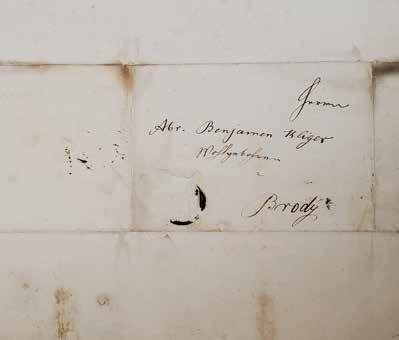 Herrn
Abr. Benjamen Kliger
Wohlgeboren
Brody